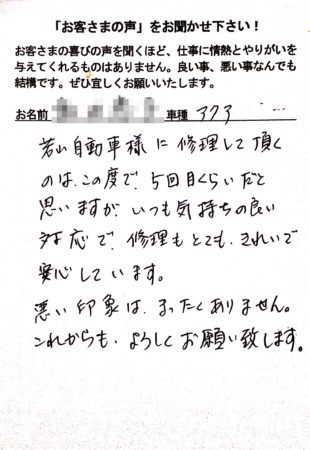 「お客さまの声」をお聞かせ下さい！
お客さまの喜びの声を聞くほど、仕事に情熱とやりがいを
与えてくれるものはありません。良い事、悪い事なんでも
結構です。ぜひ宜しくお願いいたします。
お名前 車種 アクア
若山自動車様に修理して頂く
のは、この度で、5回目くらいだと
思いますが、いつも気持ちの良い
対応で、修理もとても、きれいで
安心しています。
悪い印象は、まったくありません。
これからも、よろしくお願い致します。